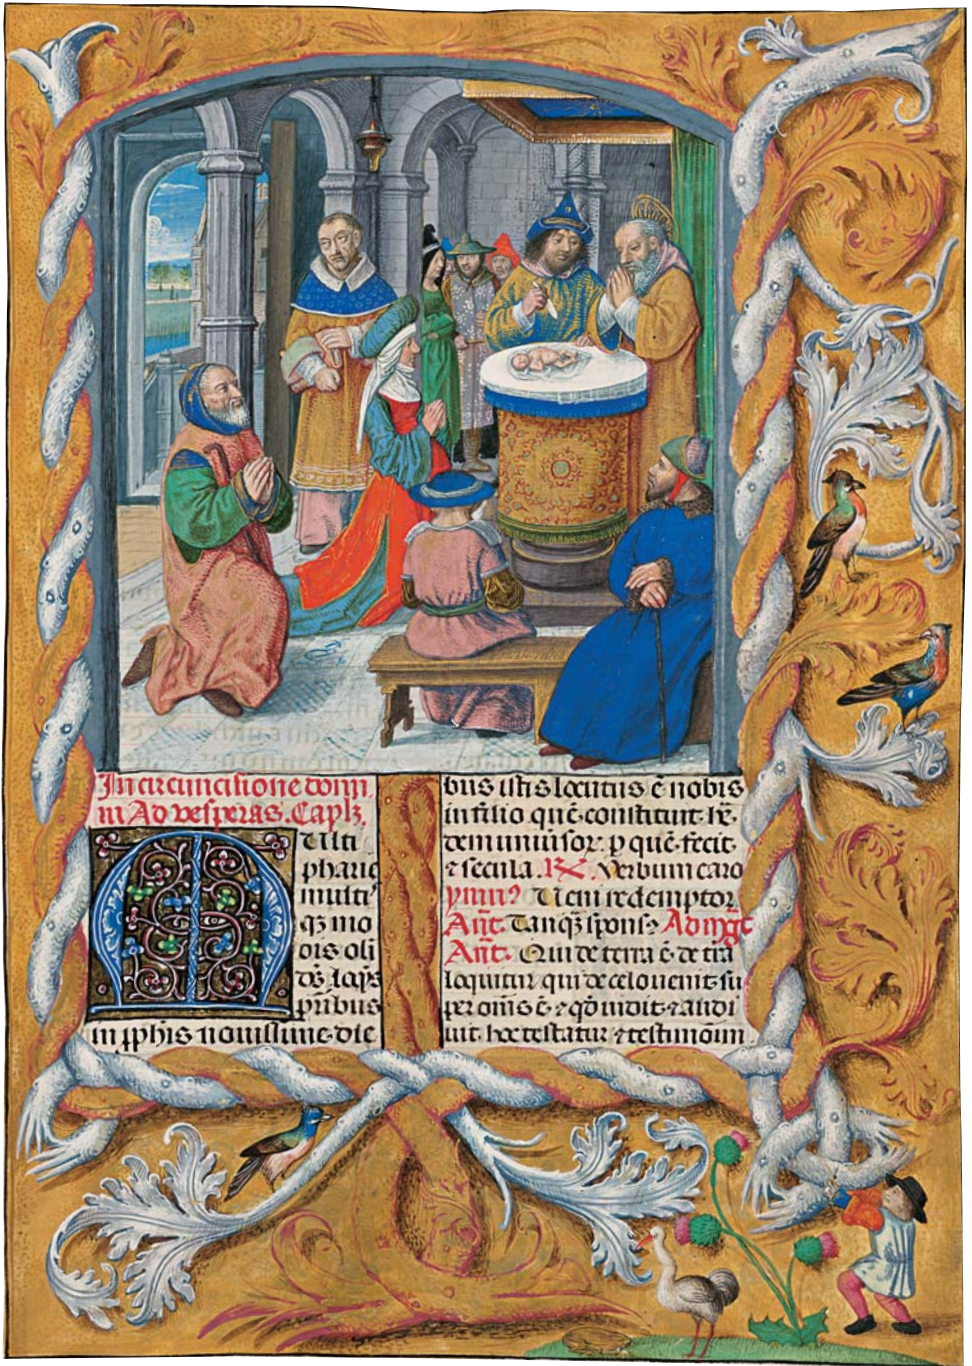 In circuncisione domi
ni Ad vesperas. Caplz.
Multi
pharie
multis
qz mo
dis oli
ds loqs
pribus
in pphis novissime die
bus istis locutus e nobis
in filio que constituit he
dem universor. p que fecit
z secula. R Verbum caro
ymn9 Veni redemptor
Ant. Tanqz spons9 Ad mgt
Ant. Qui de terra e. de tra
loquitur qui de celo venit su
per oms e. z qd vidit z audi
vit. hoc testatur z testimom